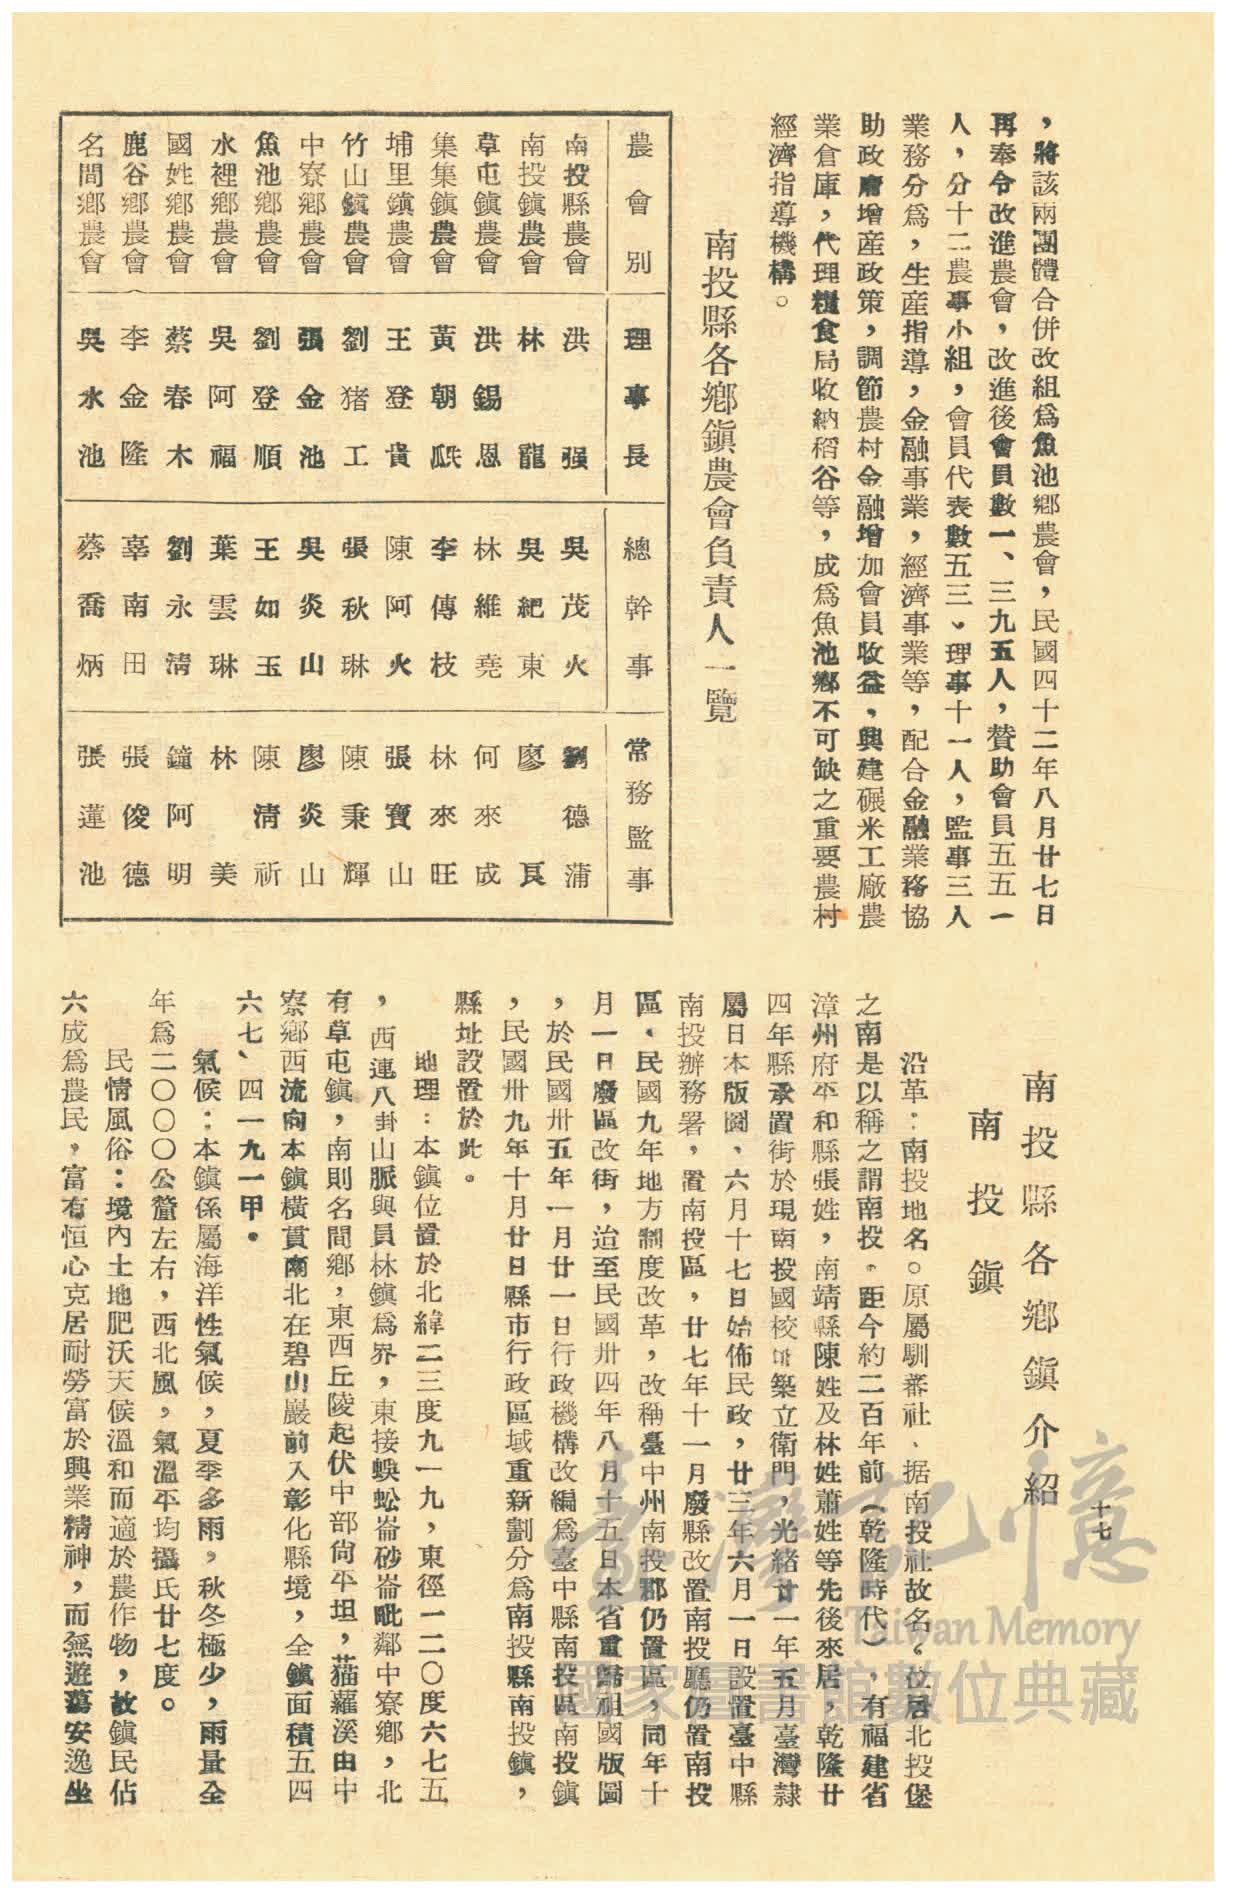 ，將該兩團體合併改組爲魚池鄕農會，民國四十二年八月廿七日
再奉令改進農會，改進後會員數一、三九五人，贊助會員五五一
人，分十二農事小組，會員代表數五三、理事十一人，監事三人
業務分爲，生産指導，金融事業，經濟事業等，配合金融業務協
助政府增産政策，調節農村金融增加會員收益，興建碾米工廠農
業倉庫，代理糧食局收納稻谷等，成爲魚池鄕不可缺之重要農村
經濟指導機構。
南投縣各鄕鎭農會負責人一覽
農會別　理事長　總幹事　常務監事
南投縣農會　洪强　吳茂火　劉德蒲
南投鎭農會　林龍　吳紀東　廖艮
草屯鎭農會　洪錫恩　林維堯　何來成
集集鎭農會　黃朝　李傳枝　林來旺
埔里鎭農會　王登貴　陳阿火　張寶山
竹山鎭農會　劉猪工　張秋琳　陳秉輝
中寮鄕農會　張金池　吳炎山　廖炎山
魚池鄕農會　劉登順　王如玉　陳清祈
水裡鄕農會　吳阿福　葉雲琳　林美
國姓鄕農會　蔡春木　劉永清　鐘阿明
鹿谷鄕農會　李金隆　辜南田　張俊德
名間鄕農會　吳水池　蔡喬炳　張蓮池
南投縣各鄕鎭介紹
南投鎭
沿革：南投地名。原屬馴蕃社、据南投社故名。位居北投堡
之南是以稱之謂南投。距今約二百年前（乾隆時代），有福建省
漳州府平和縣張姓，南靖縣陳姓及林姓蕭姓等先後來居，乾隆廿
四年縣承置街於現南投國校址築立衛門，光緒廿一年五月臺灣隷
屬日本版圖、六月十七日始佈民政，廿三年六月一日設置臺中縣
南投辦務署，置南投區，廿七年十一月廢縣改置南投廳仍置南投
區、民國九年地方制度改革，改稱臺中州南投郡仍置區，同年十
月一日廢區改街，迨至民國卅四年八月十五日本省重歸祖國版圖
，於民國卅五年一月廿一日行政機構改編爲臺中縣南投區南投鎭
，民國卅九年十月廿日縣市行政區域重新劃分爲南投縣南投鎭，
縣址設置於此。
地理：本鎭位置於北緯二三度九一九，東徑一二〇度六七五
，西連八卦山脈與員林鎭爲界，東接蜈蚣崙砂崙毗鄰中寮鄕，北
有草屯鎭，南則名間鄕，東西丘陵起伏中部尙平坦，猫蘿溪由中
寮鄕西流向本鎭橫貫南北在碧山巖前入彰化縣境，全鎭面積五四
六七、四一九一甲。
氣候：本鎭係屬海洋性氣候，夏季多雨，秋冬極少，雨量全
年爲二〇〇〇公釐左右，西北風，氣溫平均攝氏廿七度。
民情風俗：境內土地肥沃天候溫和而適於農作物，故鎭民佔
六成爲農民，富有恒心克居耐勞富於興業精神，而無遊蕩安逸坐
十七
臺灣記憶
Taiwan Memory
國家圖書館數位典藏